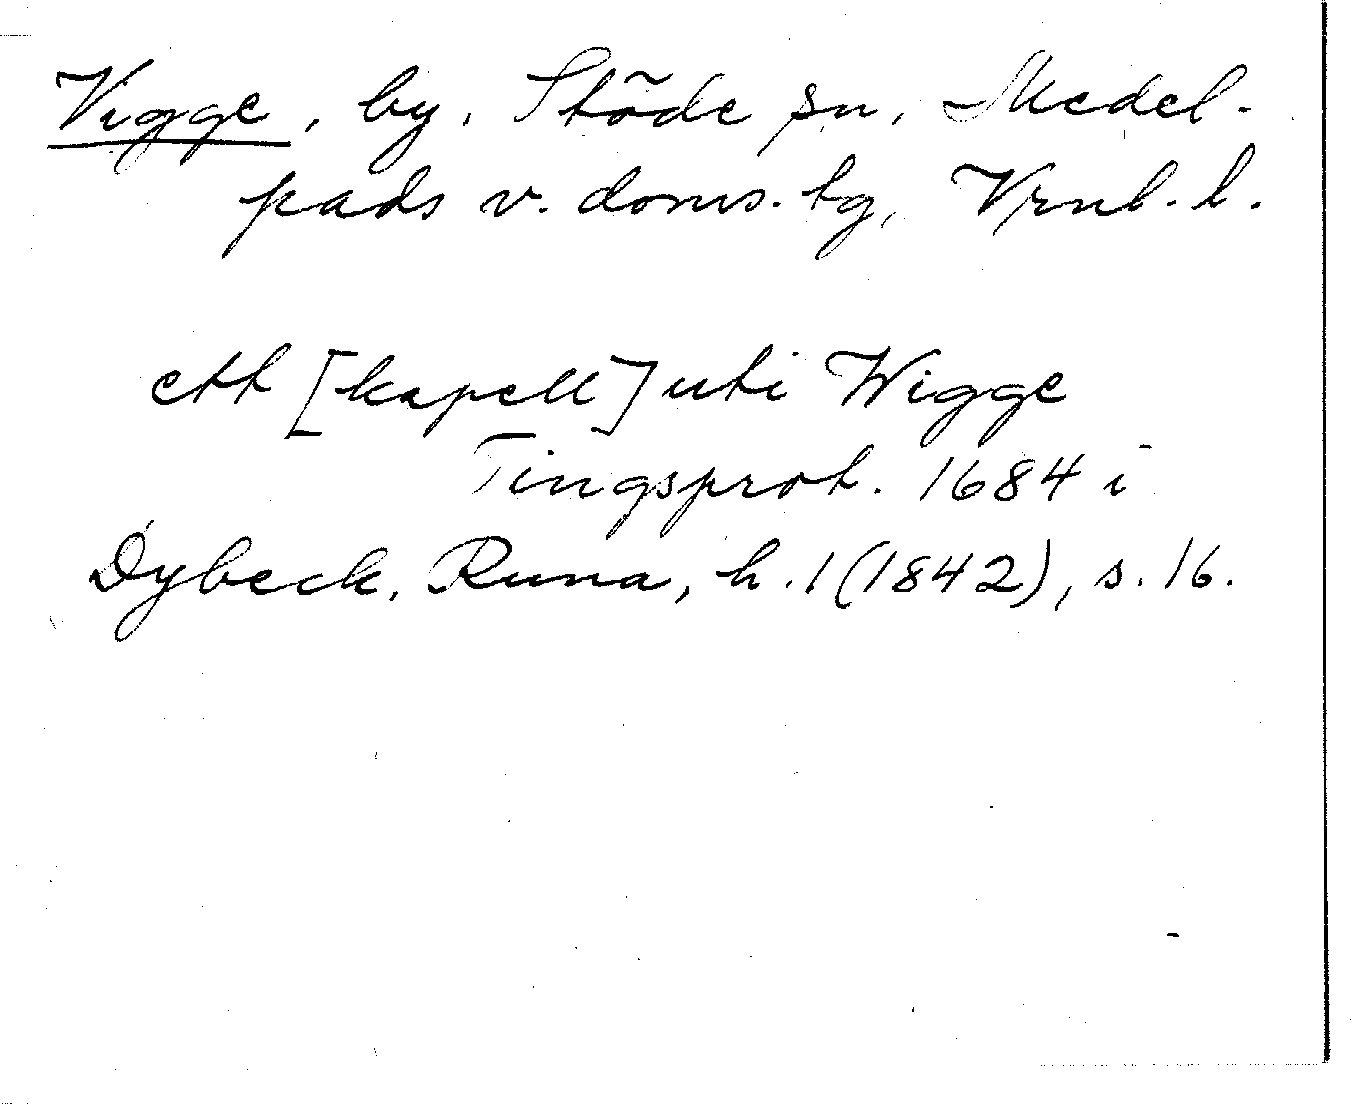 Vigge, by, Stöde sn, Medel-
pads v. doms. tg, Vrnl. l.
ett [kapell] uti Wigge
Tingsprot. 1684 i
Dybeck, Runa, h. 1 (1842), s. 16.